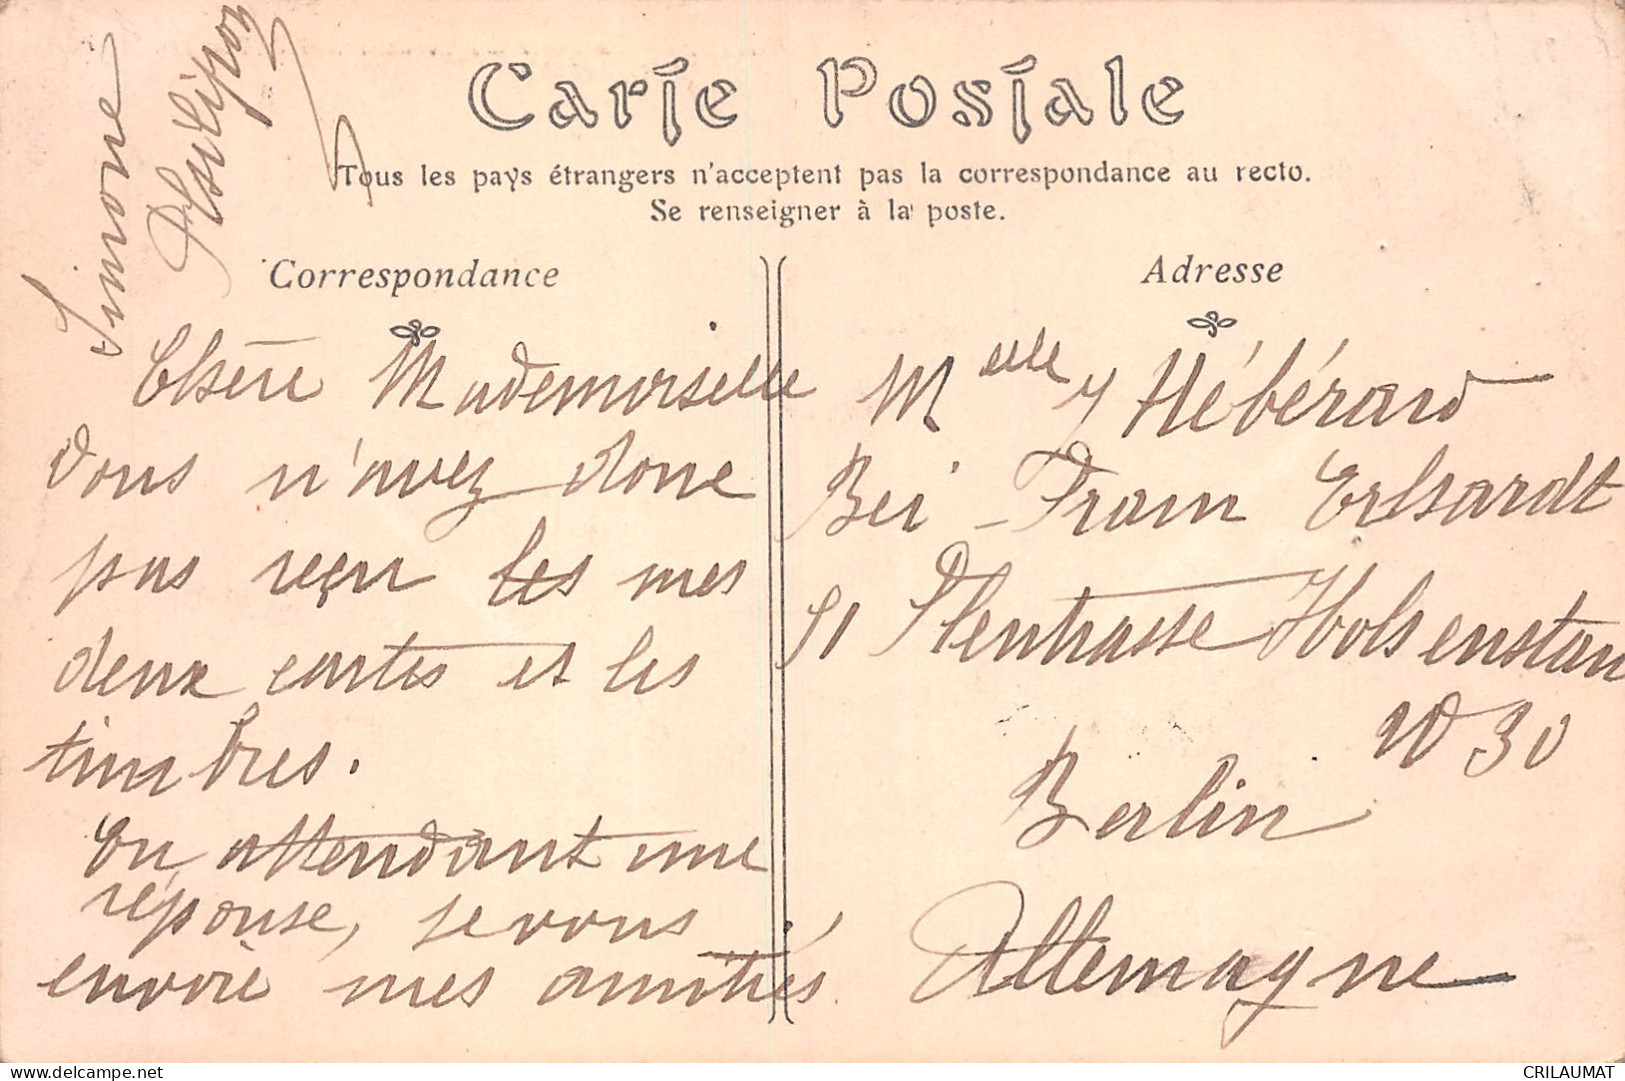 Carte Postale
Tous les pays étrangers n'acceptent pas la correspondance au recto.
Se renseigner à la poste.
Correspondance
Simone
Chère Mademoiselle
vous n'avez donc
pas reçu les mes
deux cartes et les
timbres.
En attendant une
réponse, je vous
envoie mes amitiés
Adresse
Melle Y Hébérard
Bei Fram Erhardt
Berlin
W 30
Allemagne
CRILAUMAT